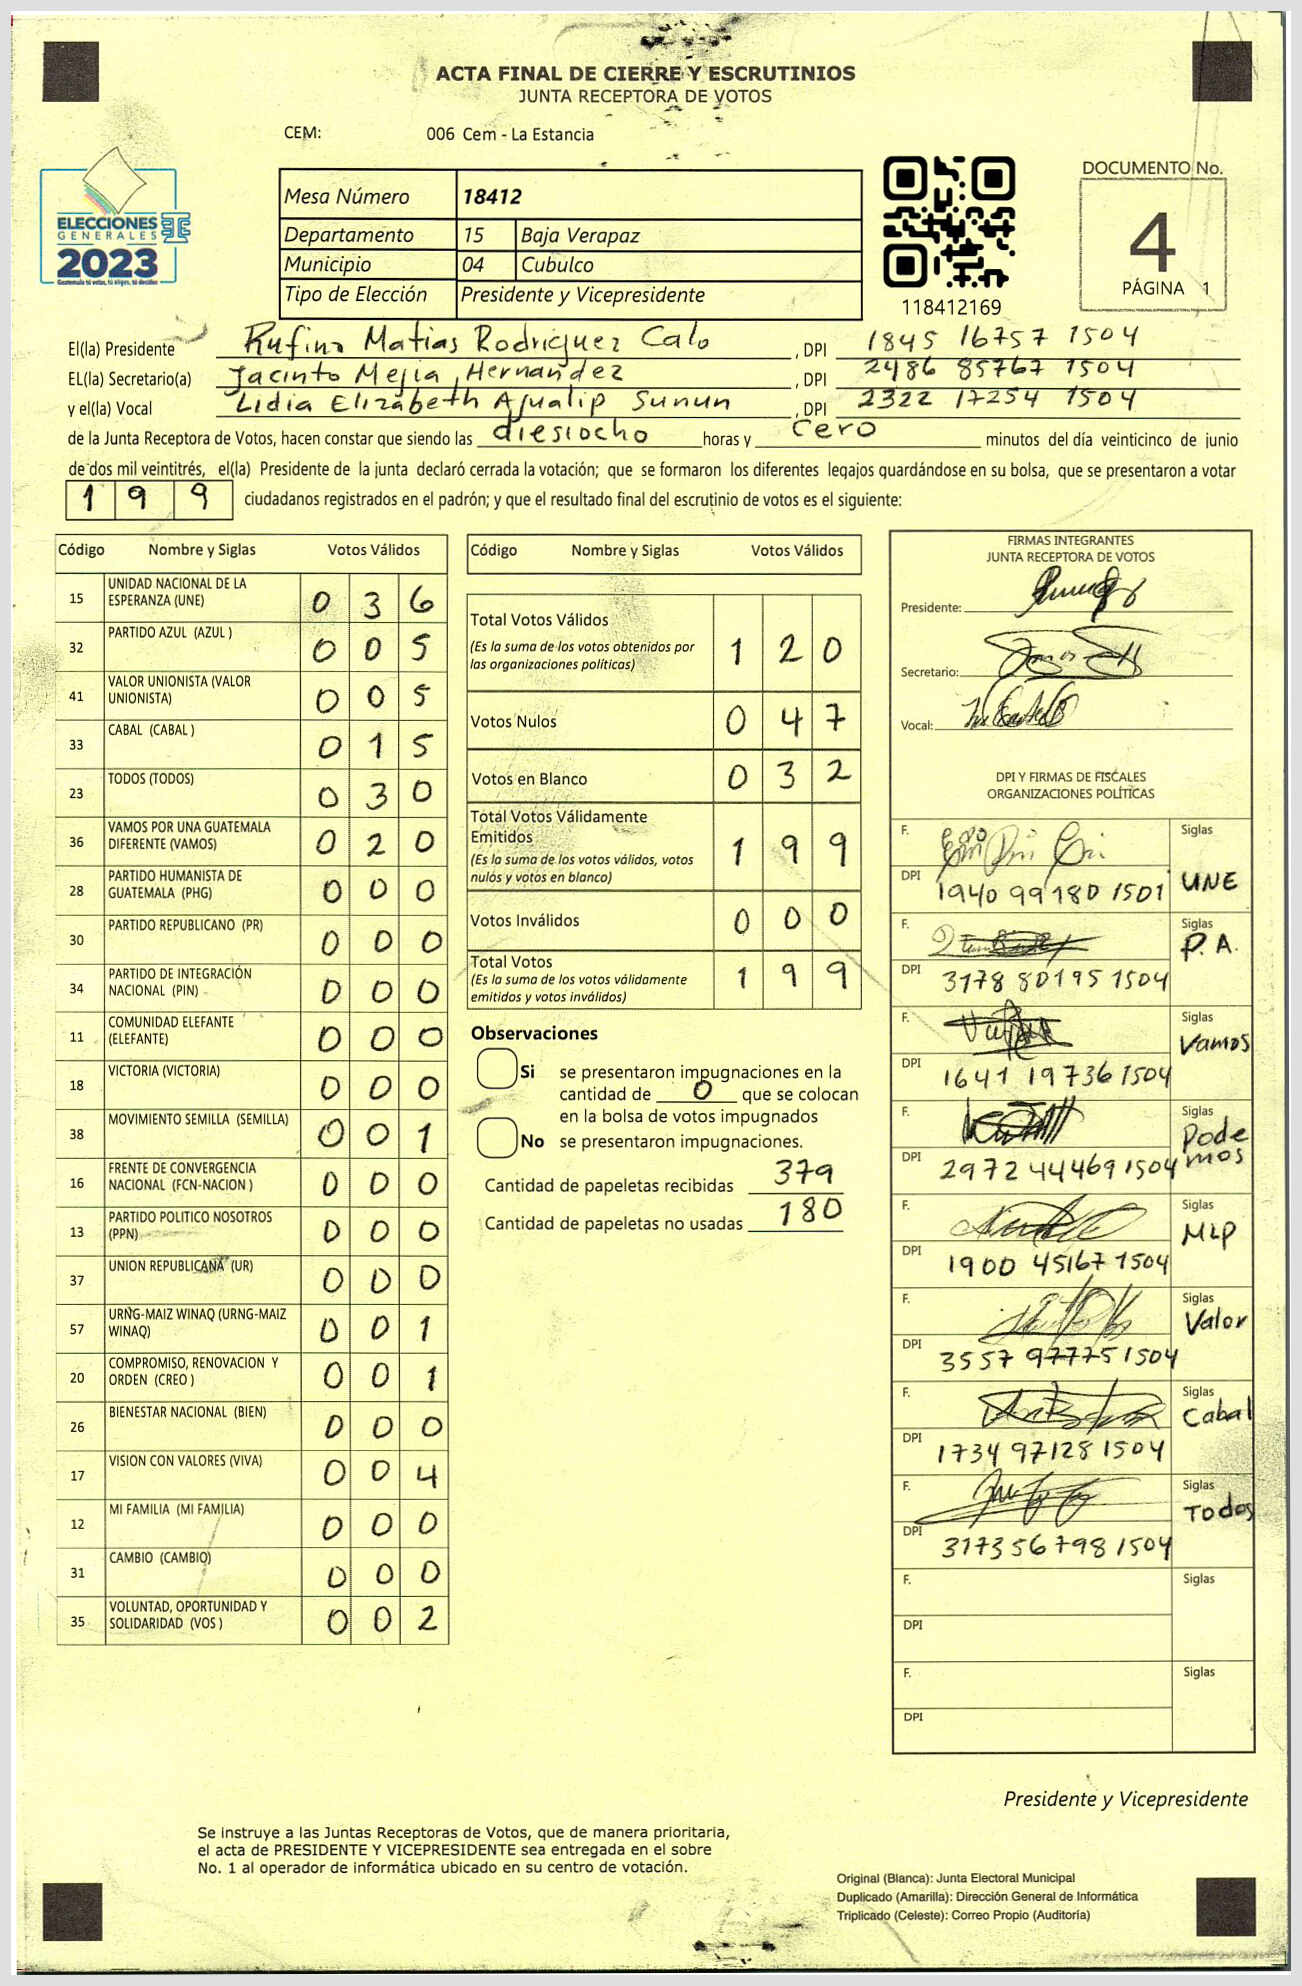 ACTA FINAL DE CIERRE Y ESCRUTINIOS
JUNTA RECEPTORA DE VOTOS
CEM: 006 Cem - La Estancia
ELECCIONES
GENERALES
2023
Guatemala tú votas, tú eliges, tú decides
Mesa Número 18412
Departamento 15 Baja Verapaz
Municipio 04 Cubulco
Tipo de Elección Presidente y Vicepresidente
118412169
DOCUMENTO No.
4
PÁGINA 1
El(la) Presidente Rufino Matias Rodriguez Calo , DPI 1845 16757 1504
EL(la) Secretario(a) Jacinto Mejia Hernandez , DPI 2486 85767 1504
y el(la) Vocal Lidia Elizabeth Ajualip Sunun , DPI 2322 17254 1504
de la Junta Receptora de Votos, hacen constar que siendo las diesiocho horas y cero minutos del día veinticinco de junio
de dos mil veintitrés, el(la) Presidente de la junta declaró cerrada la votación; que se formaron los diferentes legajos quardándose en su bolsa, que se presentaron a votar
199 ciudadanos registrados en el padrón; y que el resultado final del escrutinio de votos es el siguiente:
Código Nombre y Siglas Votos Válidos
15 UNIDAD NACIONAL DE LA
ESPERANZA (UNE) 0 3 6
32 PARTIDO AZUL (AZUL ) 0 0 5
41 VALOR UNIONISTA (VALOR
UNIONISTA) 0 0 5
33 CABAL (CABAL ) 0 1 5
23 TODOS (TODOS) 0 3 0
36 VAMOS POR UNA GUATEMALA
DIFERENTE (VAMOS) 0 2 0
28 PARTIDO HUMANISTA DE
GUATEMALA (PHG) 0 0 0
30 PARTIDO REPUBLICANO (PR) 0 0 0
34 PARTIDO DE INTEGRACIÓN
NACIONAL (PIN) 0 0 0
11 COMUNIDAD ELEFANTE
(ELEFANTE) 0 0 0
18 VICTORIA (VICTORIA) 0 0 0
38 MOVIMIENTO SEMILLA (SEMILLA) 0 0 1
16 FRENTE DE CONVERGENCIA
NACIONAL (FCN-NACION ) 0 0 0
13 PARTIDO POLITICO NOSOTROS
(PPN) 0 0 0
37 UNION REPUBLICANA (UR) 0 0 0
57 URNG-MAIZ WINAQ (URNG-MAIZ
WINAQ) 0 0 1
20 COMPROMISO, RENOVACION Y
ORDEN (CREO ) 0 0 1
26 BIENESTAR NACIONAL (BIEN) 0 0 0
17 VISION CON VALORES (VIVA) 0 0 4
12 MI FAMILIA (MI FAMILIA) 0 0 0
31 CAMBIO (CAMBIO) 0 0 0
35 VOLUNTAD, OPORTUNIDAD Y
SOLIDARIDAD (VOS ) 0 0 2
Código Nombre y Siglas Votos Válidos
Total Votos Válidos
(Es la suma de los votos obtenidos por
las organizaciones políticas) 1 2 0
Votos Nulos 0 4 7
Votos en Blanco 0 3 2
Total Votos Válidamente
Emitidos
(Es la suma de los votos válidos, votos
nulos y votos en blanco) 1 9 9
Votos Inválidos 0 0 0
Total Votos
(Es la suma de los votos válidamente
emitidos y votos inválidos) 1 9 9
Observaciones
Si se presentaron impugnaciones en la
cantidad de 0 que se colocan
en la bolsa de votos impugnados
No se presentaron impugnaciones.
Cantidad de papeletas recibidas 379
Cantidad de papeletas no usadas 180
FIRMAS INTEGRANTES
JUNTA RECEPTORA DE VOTOS
Presidente:
Secretario:
Vocal:
DPI Y FIRMAS DE FISCALES
ORGANIZACIONES POLÍTICAS
F. Siglas
DPI 1940 99180 1501 UNE
F. Siglas
DPI 3178 80195 1504 P.A.
F. Siglas
DPI 1641 19736 1504 Vamos
F. Siglas
DPI 2972 44469 1504 Pode
mos
F. Siglas
DPI 1900 45167 1504 MLP
F. Siglas
DPI 3557 97775 1504 Valor
F. Siglas
DPI 1734 97128 1504 Cabal
F. Siglas
DPI 3173 56798 1504 Todos
F. Siglas
DPI
F. Siglas
DPI
Presidente y Vicepresidente
Se instruye a las Juntas Receptoras de Votos, que de manera prioritaria,
el acta de PRESIDENTE Y VICEPRESIDENTE sea entregada en el sobre
No. 1 al operador de informática ubicado en su centro de votación.
Original (Blanca): Junta Electoral Municipal
Duplicado (Amarilla): Dirección General de Informática
Triplicado (Celeste): Correo Propio (Auditoría)